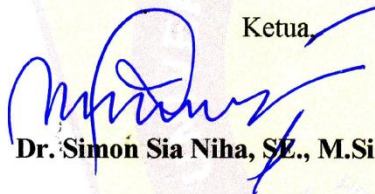 Ketua,
Dr. Simon Sia Niha, SE., M.Si